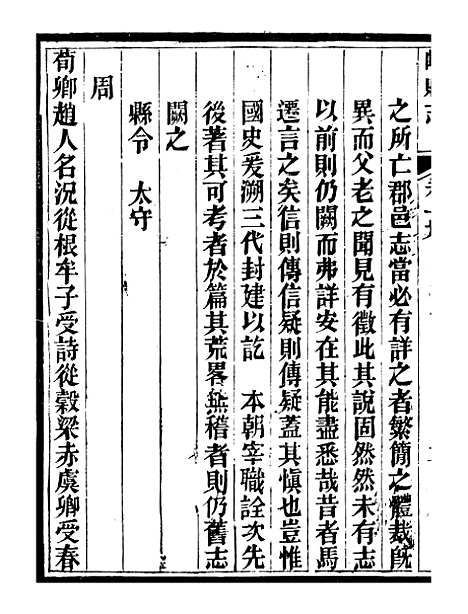 之所亡郡邑志當必有詳之者繁簡之體裁既
異而父老之聞見有徵此其說固然然未有志
以前則仍闕而弗詳安在其能盡悉哉昔者馬
遷言之矣信則傳信疑則傳疑蓋其愼也豈惟
國史爰溯三代封建以訖　本朝宰職詮次先
後著其可考者於篇其荒畧無稽者則仍舊志
闕之
縣令　太守
周
荀卿趙人名況從根牟子受詩從穀梁赤虞卿受春